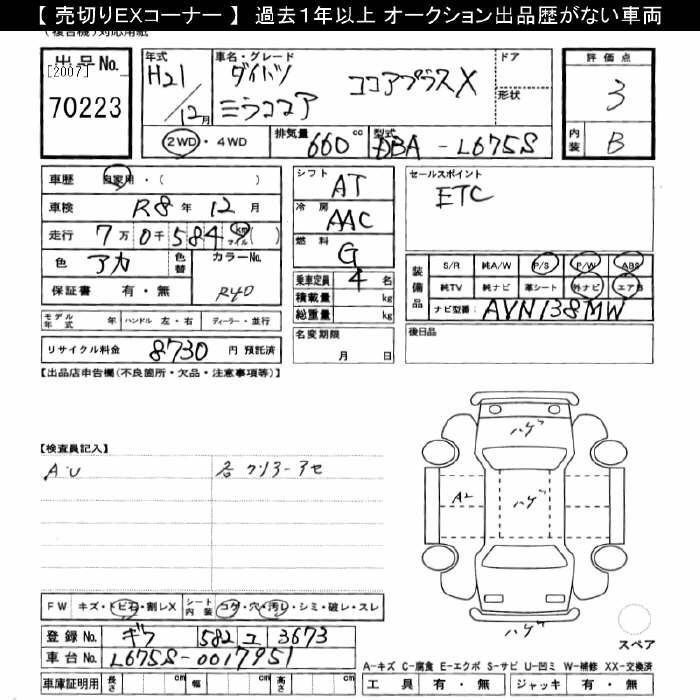 【 売切りEXコーナー 】 過去1年以上 オークション出品歴がない車両
(複合機)対応用紙
出品No. [2007] 70223
年式 H21 / 12月
車名・グレード ダイハツ ミラココア ココアプラスX
ドア
形状
2WD・4WD
排気量 660 cc
型式 DBA - L675S
評価点 3
内装 B
車歴 自家用・( )
車検 R8 年 12 月
走行 7万 0千 584 km マイル ( )
色 アカ 色替 カラーNo. R40
保証書 有・無
モデル年式 年 ハンドル 左・右 ディーラー・並行
リサイクル料金 8730 円 預託済
シフト AT
冷房 AAC
燃料 G
乗車定員 4 名
積載量 kg
総重量 kg
名変期限 月 日
セールスポイント
ETC
装備品 S/R 純A/W P/S P/W ABS
純TV 純ナビ 革シート 外ナビ エアB
ナビ型番 AVN138MW
後日品
【出品店申告欄(不良箇所・欠品・注意事項等)】
【検査員記入】
A・U 各クリアーアセ
ハゲ
A2 ハゲ
ハゲ
スペア
FW キズ・トビ石・割レX シート内装 コゲ・穴・汚レ・シミ・破レ・スレ
登録No. ギフ 582 ユ 3673
車台No. L675S-0017951
車庫証明用 長さ cm 幅 cm 高さ cm
A-キズ C-腐食 E-エクボ S-サビ U-凹ミ W-補修 XX-交換済
工具 有・無 ジャッキ 有・無